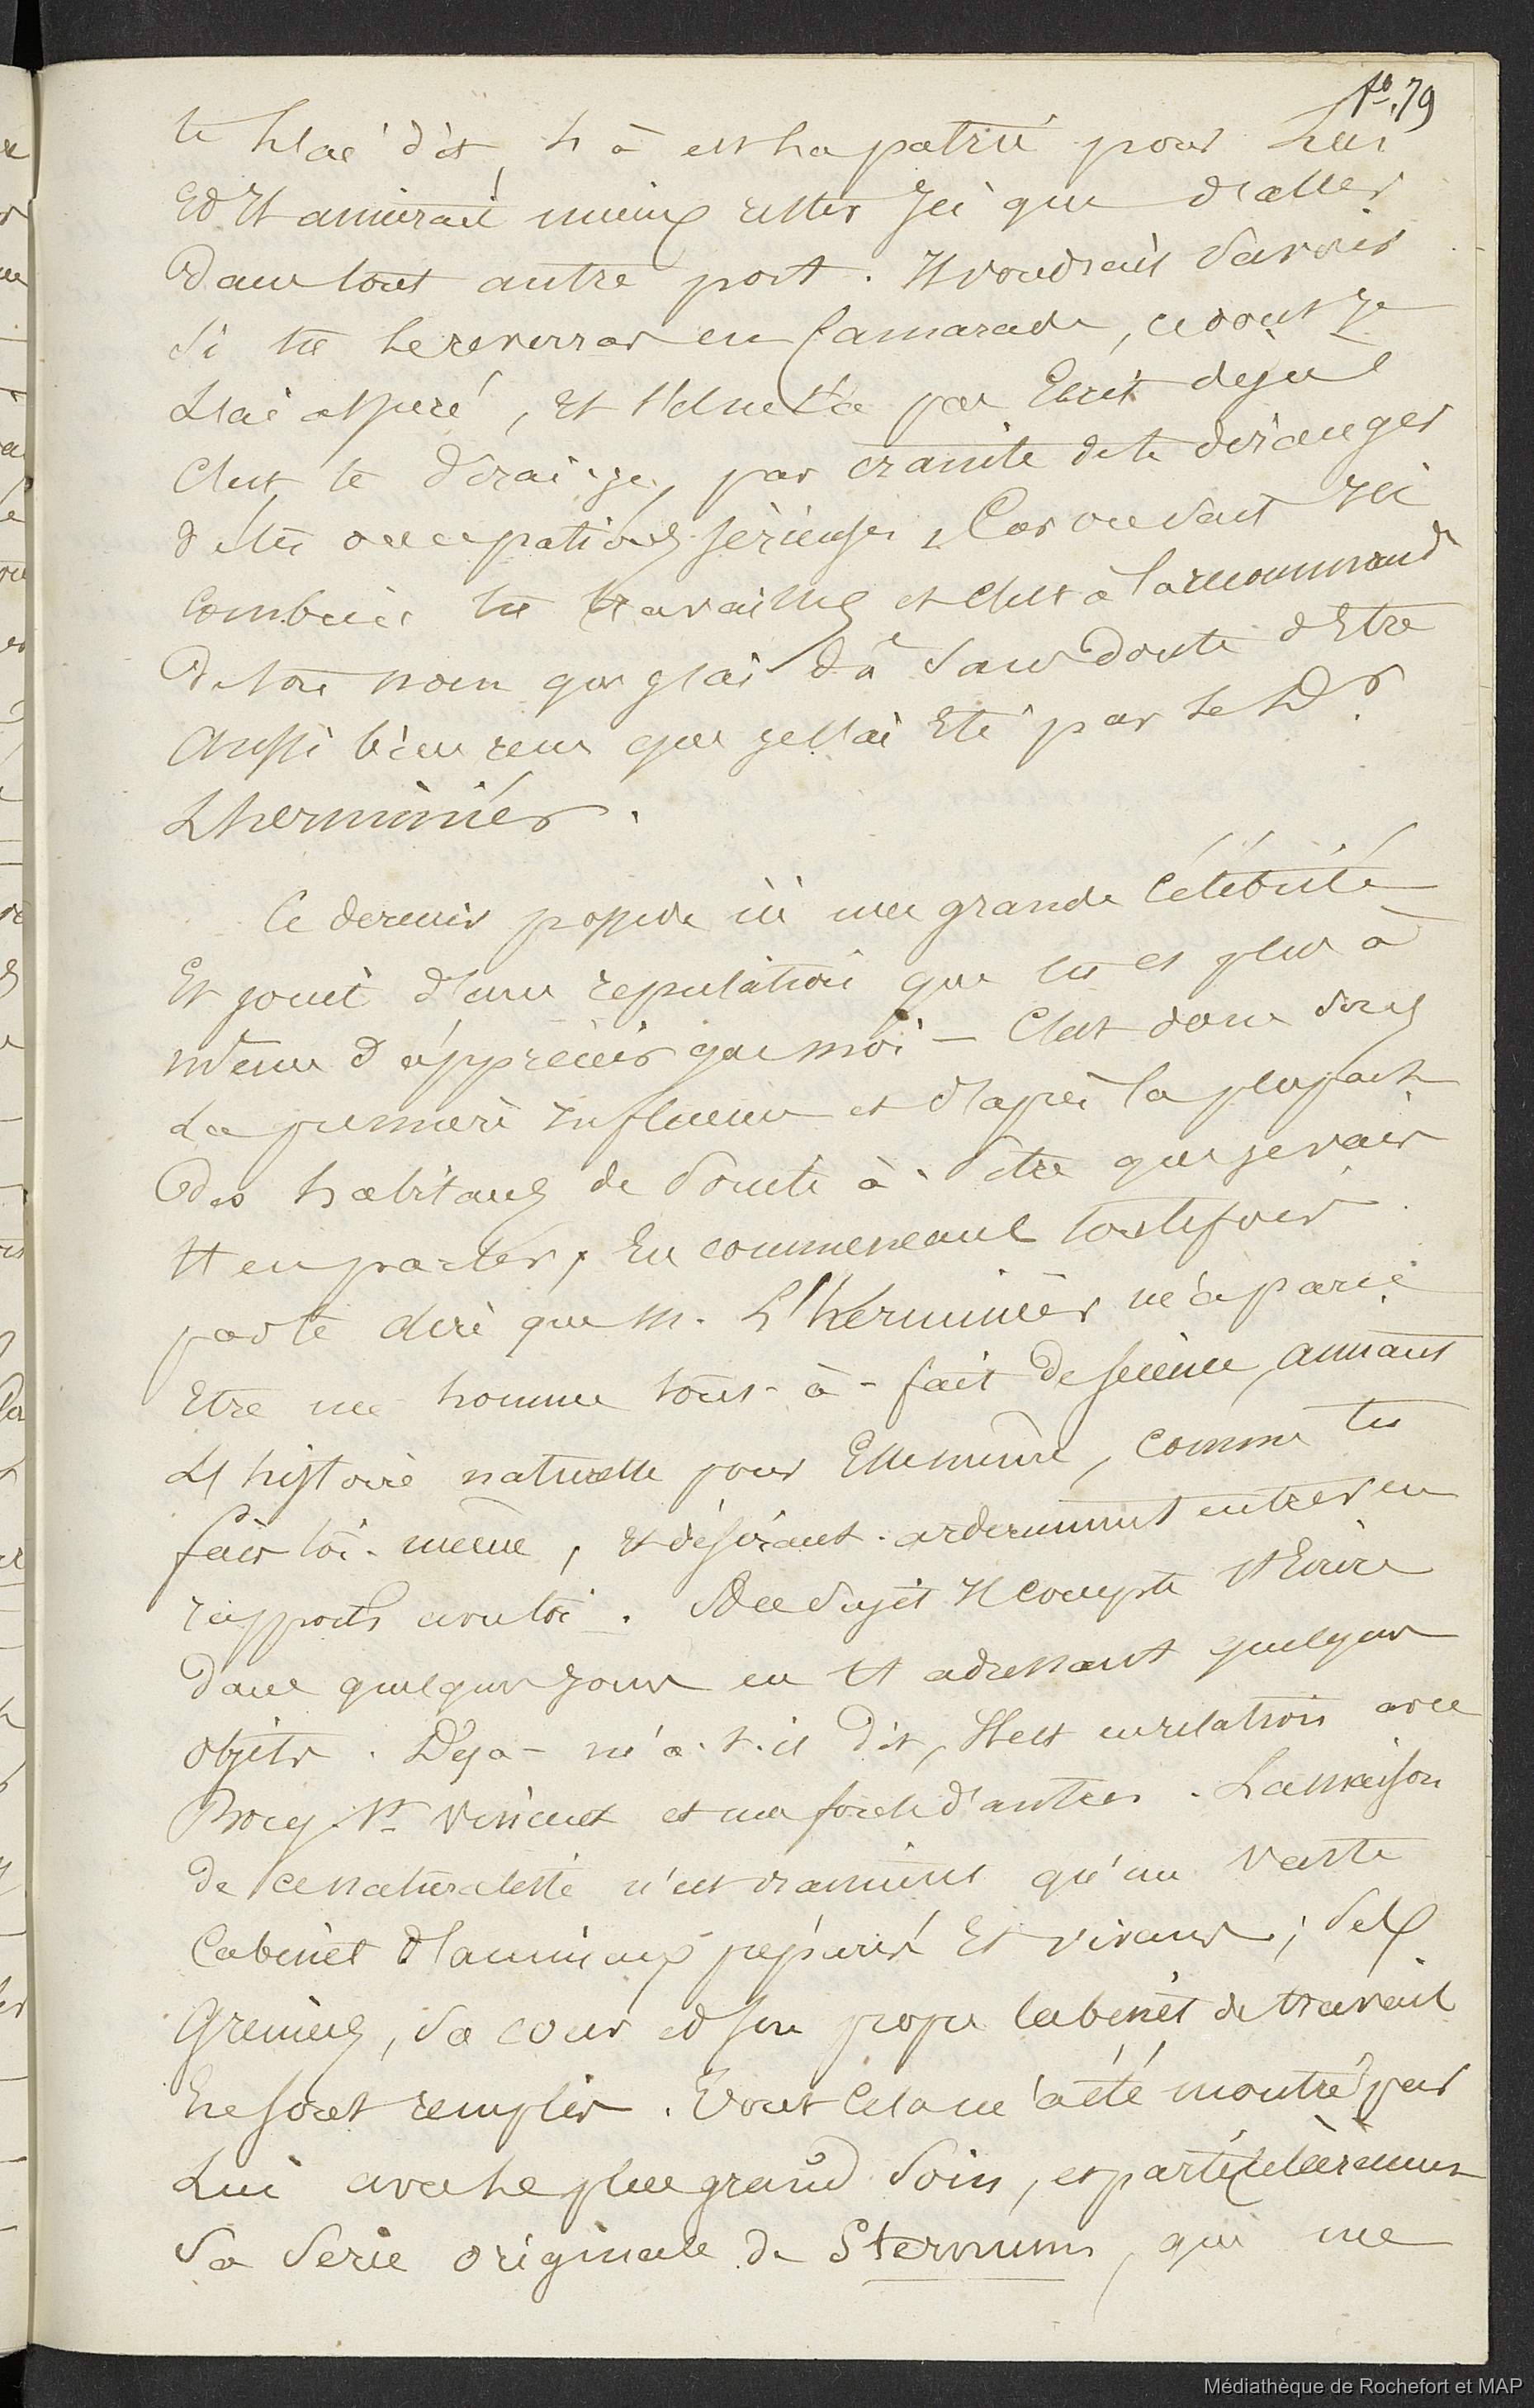 fo. 79
te l'ai dit, là est la patrie pour lui
Et Il aimerait mieux rester Ici que d'aller
Dans tout autre port. Il voudrait Savoir
Si tu le reverras en Camarade, ce dont Je
L'ai assuré, et s'il ne t'a pas Ecrit déjà
C'est te dirai-je, par crainte de te déranger
de tes occupations sérieuses, Car on sait Ici
Combien tu travailles et c'est à la recommand
De ton nom que j'ai dû Sans Doute d'Etre
Aussi bien reçu que je l'ai Eté par le Dr.
Lherminier.
Ce dernier possède ici une grande Célébrité
Et jouit d'une reputation que tu es plus à
même d'apprécier que moi — C'est donc Sous
La première Influence et d'après la plupart
Des habitans de Pointe à Pitre que je vais
t'en parler, En commencant toutefois
par te dire que M. L'herminier m'a paru
Etre un homme tout-à-fait De science, aimant
L'histoire naturelle pour Elle même, comme tu
fais toi-même, et désirant ardemment entrer en
rapports avec toi. A ce Sujet Il compte t'Ecrire
Dans quelques Jours en t'adressant quelques
objets. Déjà m'a-t-il Dit, Il est en relation avec
Bory St Vincent et une foule d'autres. La maison
de ce naturaliste n'est vraiment qu'un vaste
Cabinet d'animaux préparés Et vivans; Ses
Greniers, Sa cour et son propre Cabinet de travail
En sont remplis. Tout Cela m'a été montré par
Lui avec le plus grand Soin, et particulièrement
Sa Serie originale de Sternums, qui me
Médiathèque de Rochefort et MAP